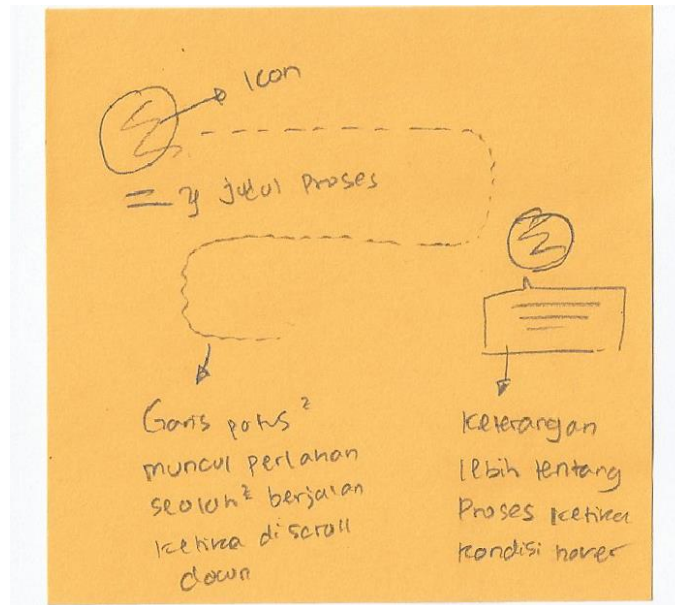 Icon
judul proses
Garis putus²
muncul perlahan
seolah² berjalan
ketika di scroll
down
Keterangan
lebih tentang
Proses ketika
kondisi hover